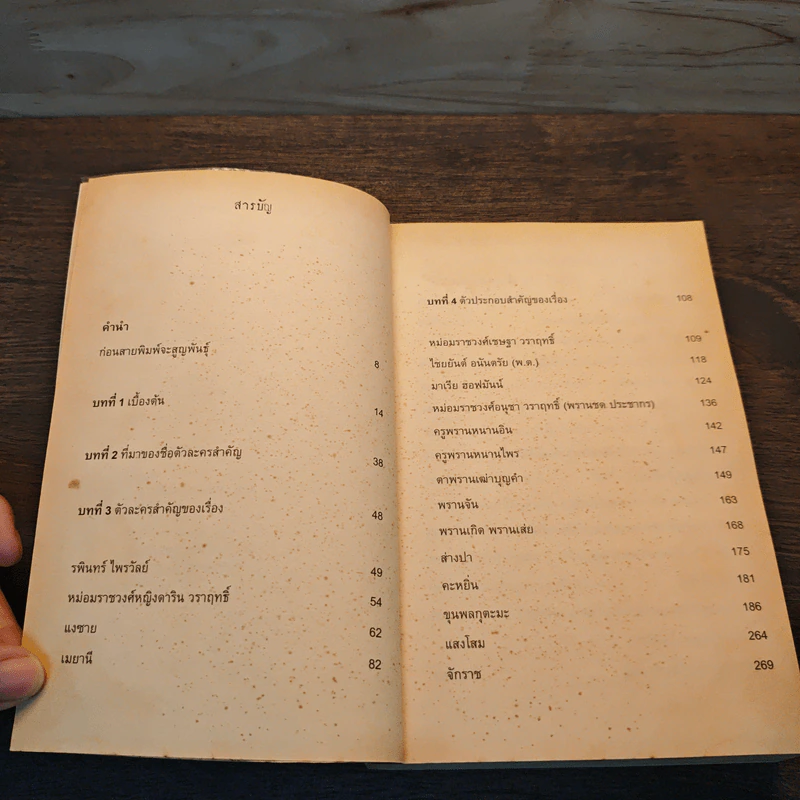 สารบัญ
คำนำ
ก่อนสายพิมพ์จะสูญพันธุ์ 8
บทที่ 1 เบื้องต้น 14
บทที่ 2 ที่มาของชื่อตัวละครสำคัญ 38
บทที่ 3 ตัวละครสำคัญของเรื่อง 48
รพินทร์ ไพรวัลย์ 49
หม่อมราชวงศ์หญิงดาริน วราฤทธิ์ 54
แงซาย 62
เมยานี 82
บทที่ 4 ตัวประกอบสำคัญของเรื่อง 108
หม่อมราชวงศ์เชษฐา วราฤทธิ์ 109
ไชยยันต์ อนันตรัย (พ.ต.) 118
มาเรีย ฮอฟมันน์ 124
หม่อมราชวงศ์อนุชา วราฤทธิ์ (พรานชด ประชากร) 136
ครูพรานหนานอิน 142
ครูพรานหนานไพร 147
ตาพรานเฒ่าบุญคำ 149
พรานจัน 163
พรานเกิด พรานเส่ย 168
ส่างปา 175
คะหยิ่น 181
ขุนพลกุตะมะ 186
แสงโสม 264
จักราช 269